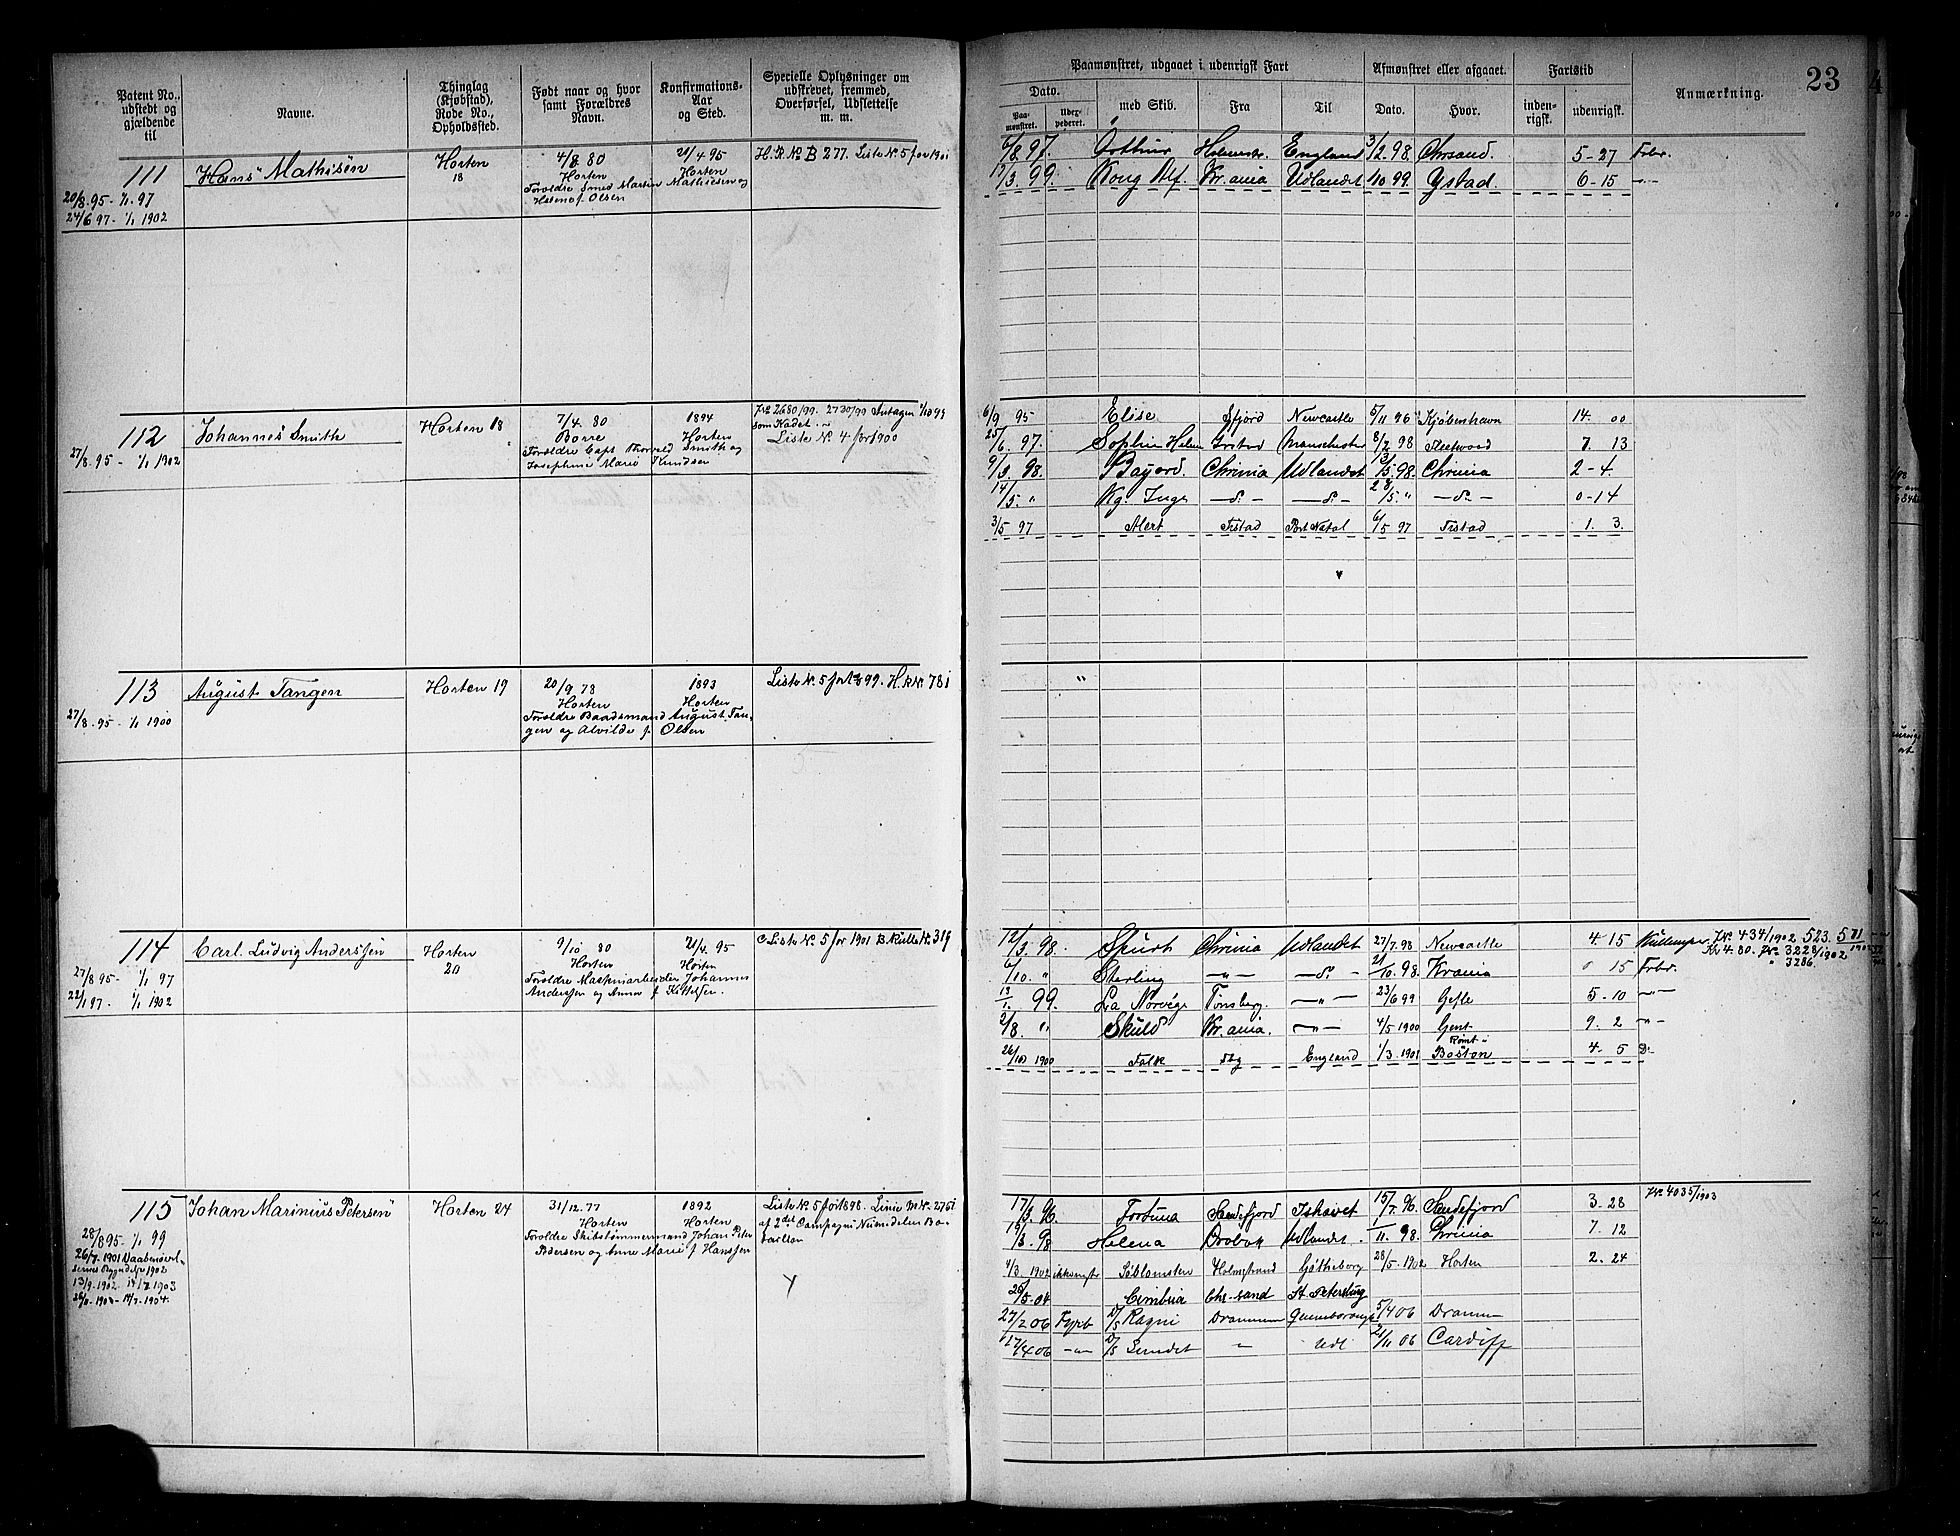 Patent No., udstedt og gjældende til
Navne.
Thinglag (Kjøbstad), Rode No., Opholdssted.
Født naar og hvor samt Forældres Navn.
Konfirmations-Aar og Sted.
Specielle Oplysninger om udskrevet, fremmed, Overførsel, Udslettelse m. m.
111 Hans Mathisen
Horten 18
4/8 80
Horten
21/4 95
Horten
H.R.No B 277. Liste No 5 for 1901
Helene f. Olsen
20/8.95 - 1/1 97
24/6 97 - 1/1 1902
112 Johannes Smith
Horten 18
7/4. 80
Borre
Foreldre Capt Thorvald Smith og
Josephine Marie Knudsen
1894
Horten
Jr. 2680/99. 2730/99 Antagen 1/10 99
som Kadet.
Liste No 4 for 1900
27/8.95 - 1/1 1902
113 August Tangen
Horten 19
20/9 78
Horten
Foreldre Baadsmand August Tan-
gen og Alvilde f. Olsen
1893
Horten
Liste No. 5 for 1899. H. R. No. 781
27/8.95 - 1/1 1900
114 Carl Ludvig Anderssen
Horten 20
9/10 80
Horten
Foreldre Maskinarbeider Johannes
Anderssen og Anna f. Kittelsen.
21/4. 95
Horten
Liste No. 5 for 1901 B Rulle No. 319
27/8 95 - 1/1 97
22/1 97. - 1/1 1902
115 Johan Marinius Petersen
Horten 24
31/12.77
Horten
Foreldre Skibstømmermand Johan Peter
Pedersen og Anne Marie f. Hanssen
1892
Horten
Liste No. 5 for 1898. Linie No. 2761
af 2det Campagni Numedalen Ba-
taillon
28/8 95 - 1/1 99
13/9.1902
23
Paamønstret, udgaaet i udenrigsk Fart
Afmønstret eller afgaaet.
Fartstid
Anmærkning.
Dato.
Paa-mønstret.
Uder-pederet.
med Skib.
Fra
Til
Dato.
Hvor.
inden-rigsk.
udenrigsk.
6/8.97. Holmestr. England 3/2.98. Chrsand. 5-27 Frbr.
/3.99. Kong Alf. Kr.ania Udlandet 1/10 99. Ystad. 6-15 -"-
6/9 95 Elise Sfjord Newcastle 5/11 96 Kjøbenhavn 14. 00
25/6.97. Sophie Helene Manschester 8/2 98 Fleetwood 7. 13
9/3.98. Bayard. Chrinia Udlandet 3/5.98. Chrinia 2-4.
14/5. " Kg. Inge -d°- -d°- 28/5." -d°- 0-14
3/5 97 Alert Frstad Port Natal 6/5 97 Frstad 1. 3.
"
12/3.98. Spurt Chrinia Udlandet 27/7.98 Newcastle 4-15
6/10. " Sterling -"- -d°- 21/10.98. Krania 0 15 Frbr.
99. La Norvége Tønsberg. -"- 23/6 99 Gefle 5-10 -"-
2/8. " Skuld Kr.ania. -"- 4/5 1900 Gent 9. 2 -"-
26/10 1900 Falk Fbg England 1/3.1901 Rømt i Boston 4-5 D°
Jr. 434/1902 523. 571
Jr. 3228/1902
" 3286.
17/3.96. Fortuna Sandefjord Ishavet 15/7.96. Sandefjord 3-28 Jr. 4035/1903
/3.98 Helena Drøbak Udlandet. 1/11.98. Chrinia 7. 12
4/3 1902 Søblomsten Holmestrand Gøtheborg 28/5.1902 Horten 2.24
26/5.04 Cimbria Chr.sand St Petersburg
27/2 06 Fyrb D/S Ragni Drammen 5/4 06 Dramm
17/4 06 -"- D/S " Udl 21/11 06 Cardiff